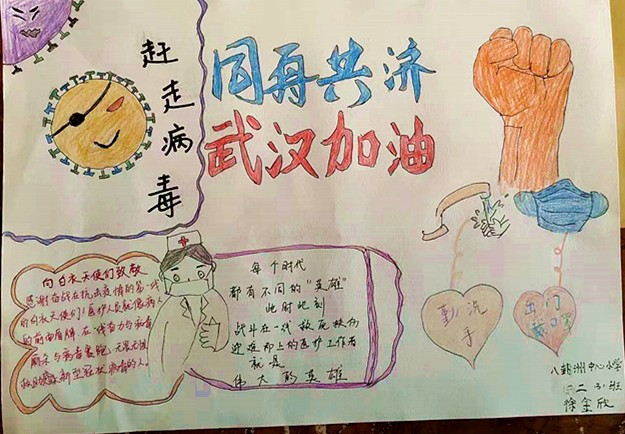 赶走病毒
同舟共济
武汉加油
向白衣天使们致敬
感谢奋战在抗击疫情的第一线
的白衣天使们!医护人员就像病人
的前面盾牌
每个时代
都有不同的“英雄”
此时此刻
战斗在一线救死扶伤
迎难而上的医护工作者
就是
伟大的英雄
勤洗
手
出门
戴口罩
八卦洲中心小学
二(3)班
徐全欣